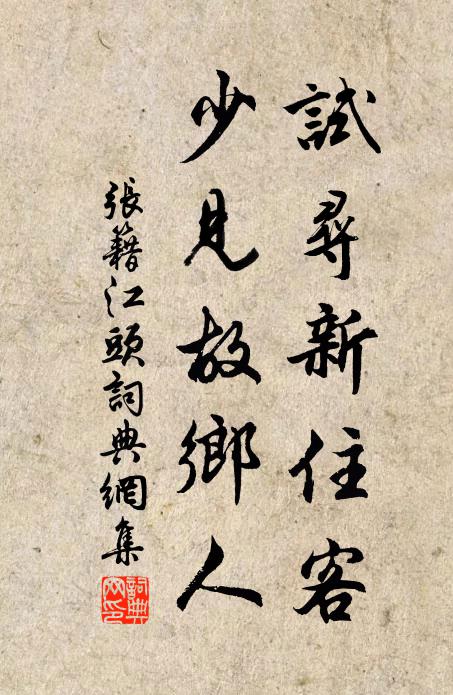 試尋新住客
少見故鄉人
張籍江頭詞典網集
詞典网印